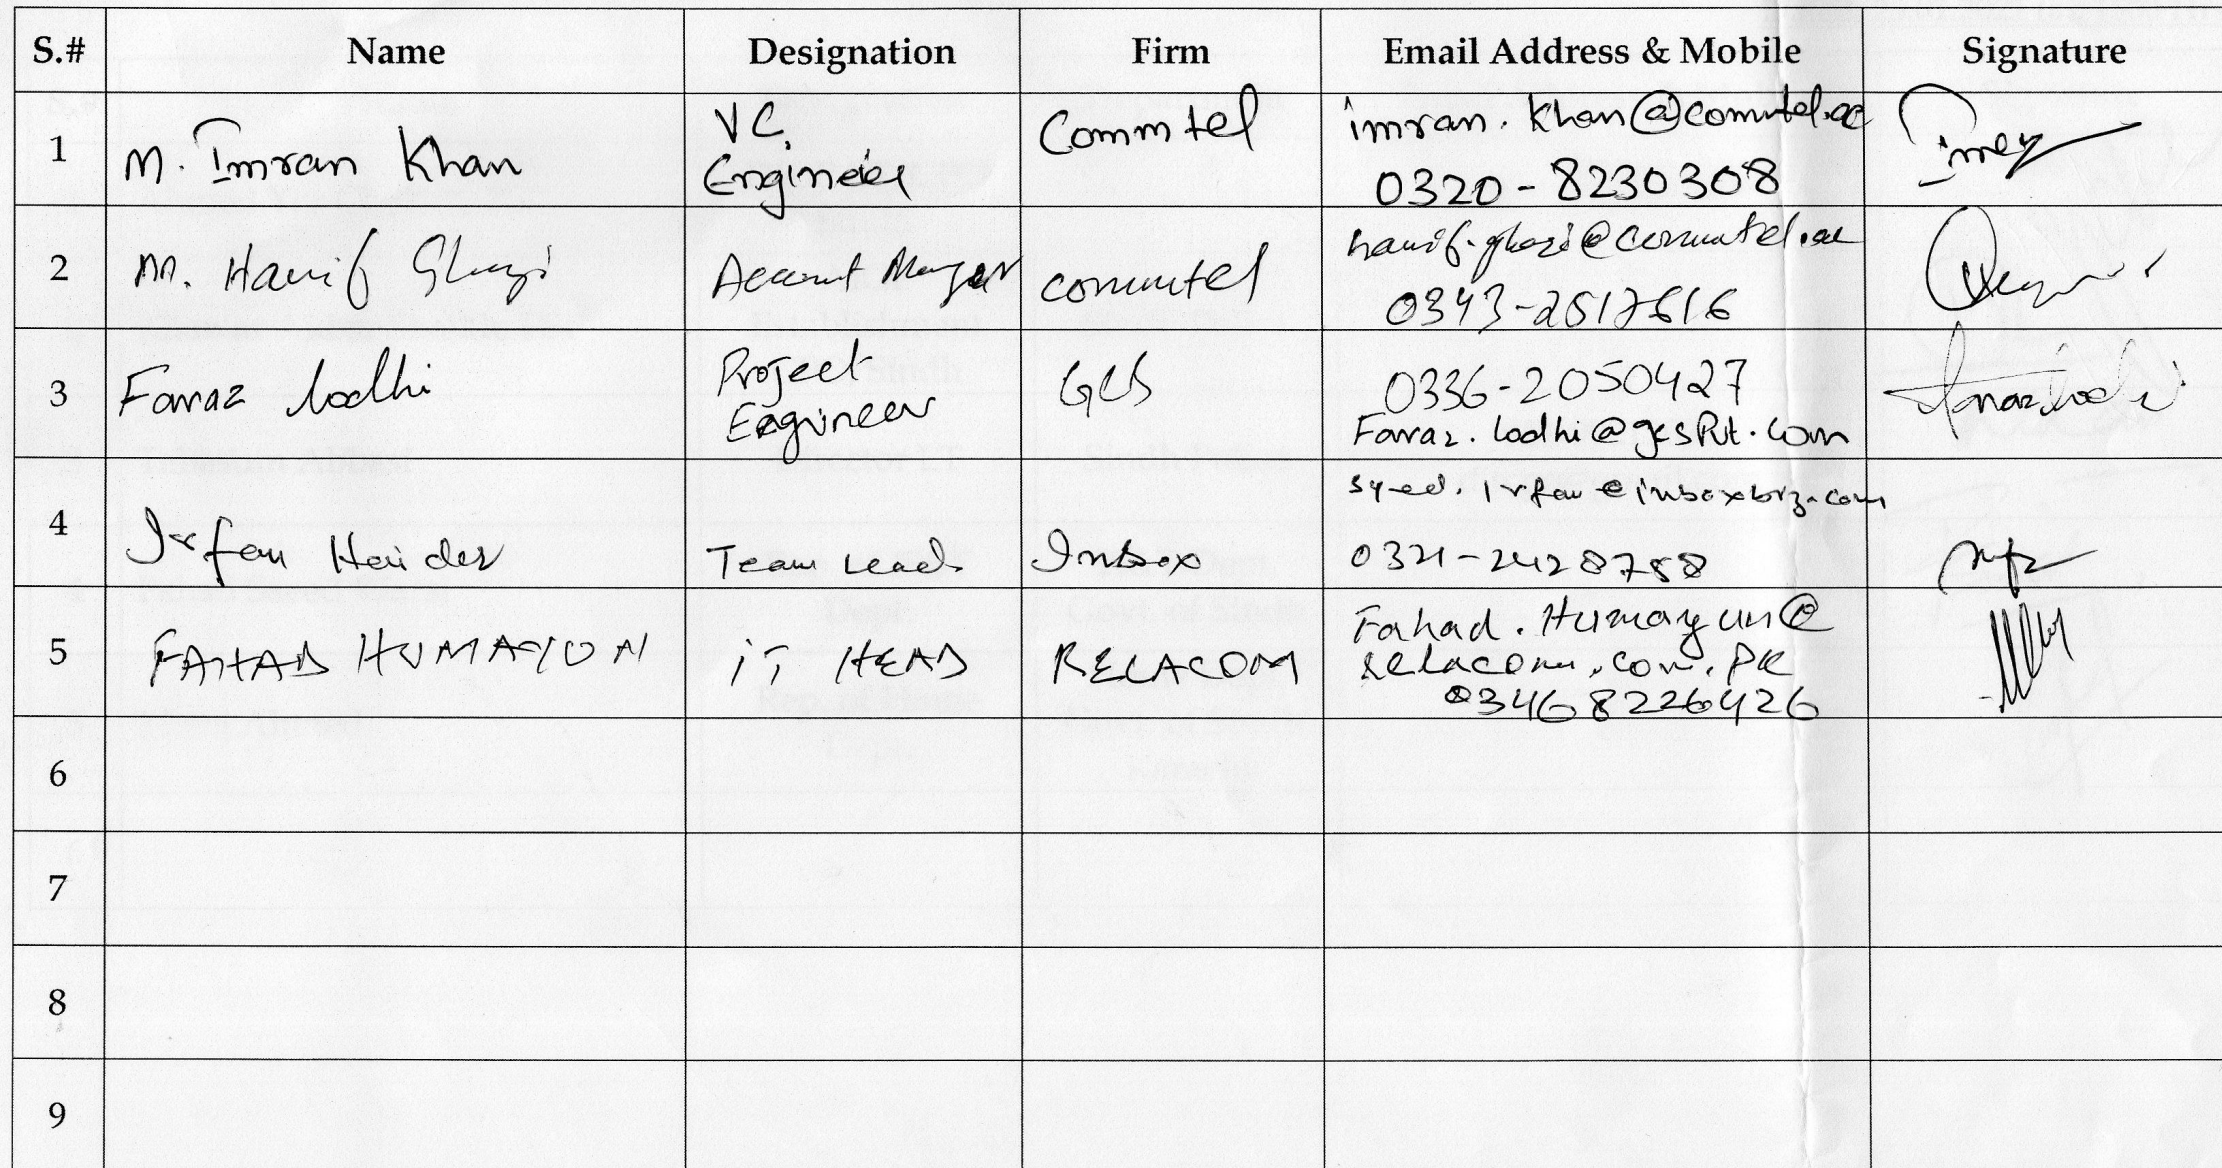 S.# Name Designation Firm Email Address & Mobile Signature
1 M. Imran Khan VC. Engineer Commtel imran.khan@commtel.ae
0320-8230308
2 M. Hanif Ghazi Account Manager commtel hanif.ghazi@commtel.ae
0343-2517616
3 Faraz lodhi Project Engineer GCS 0336-2050427
Faraz.lodhi@gcsPvt.com
4 Irfan Haider Team Lead Inbox syed.irfan@inboxbiz.com
0321-2428788
5 FAHAD HUMAYUN iT HEAD RELACOM Fahad.Humayun@
relacom.com.PK
03468226426
6
7
8
9